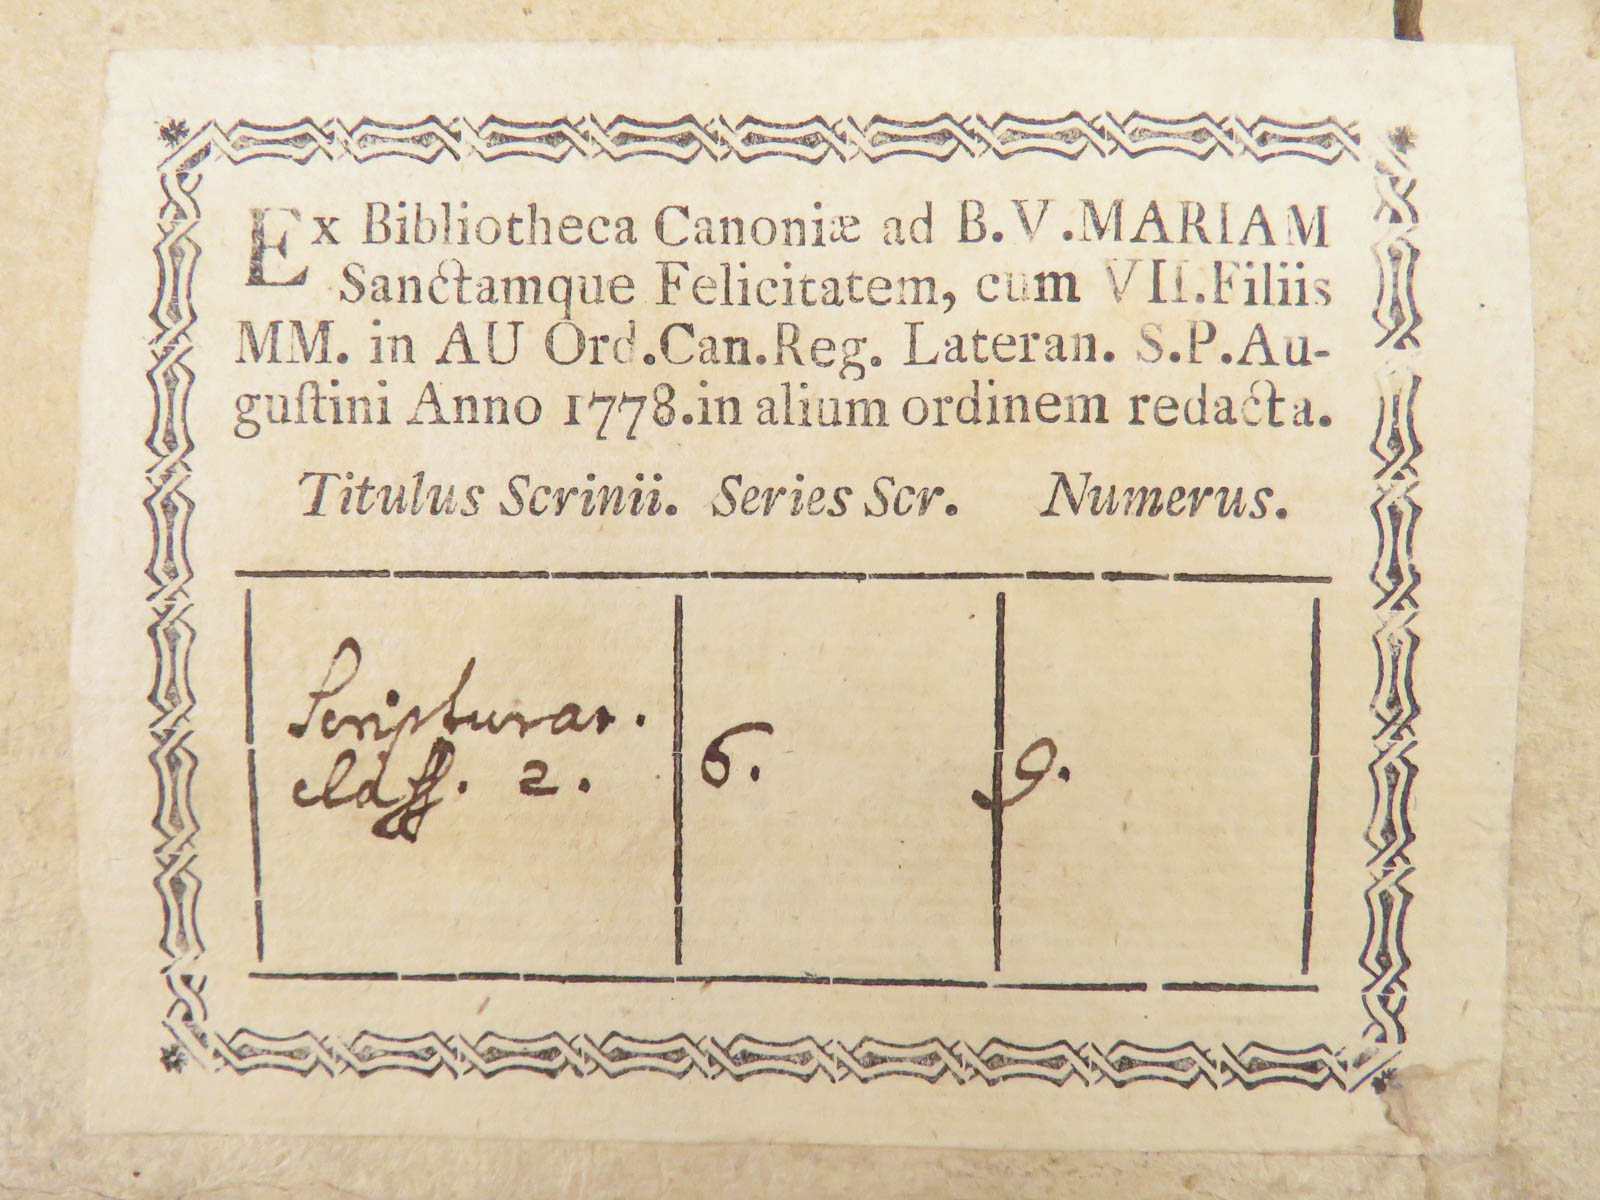 Ex Bibliotheca Canoniæ ad B.V.MARIAM
Sanctamque Felicitatem, cum VII.Filiis
MM. in AU Ord.Can.Reg. Lateran. S.P.Au-
guſtini Anno 1778.in alium ordinem redacta.
Titulus Scrinii. Series Scr. Numerus.
Scripturar.
claſſ. 2. 6. 9.